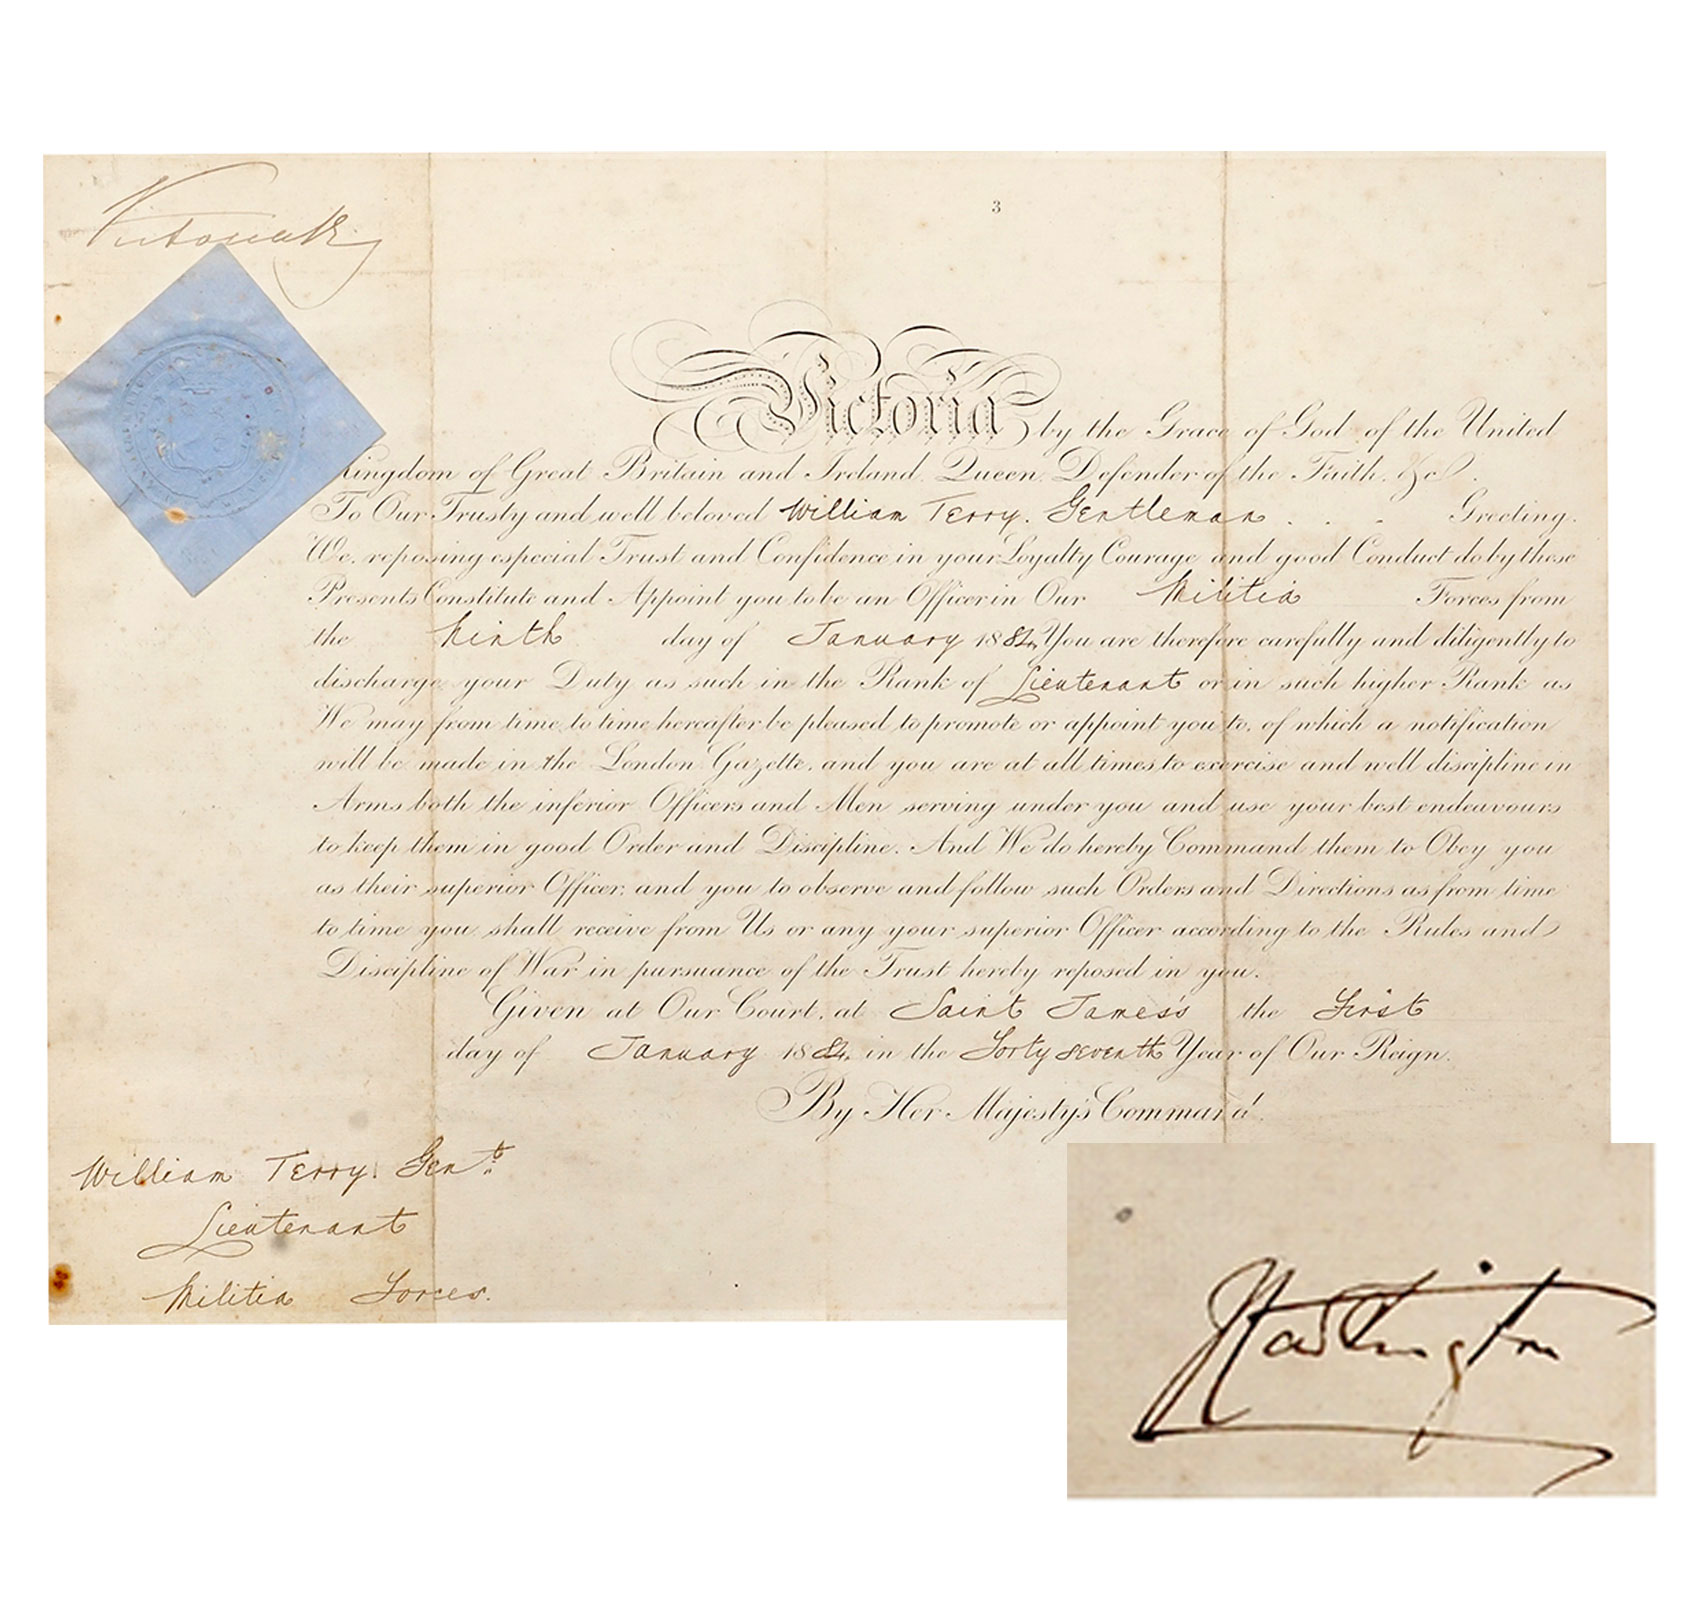 Victoria R
3
Victoria by the Grace of God of the United
Kingdom of Great Britain and Ireland, Queen, Defender of the Faith, &c.
To Our Trusty and well beloved William Terry. Gentleman . . . Greeting.
We, reposing especial Trust and Confidence in your Loyalty Courage and good Conduct do by these
Presents Constitute and Appoint you to be an Officer in Our Militia Forces from
the Ninth day of January 1884. You are therefore carefully and diligently to
discharge your Duty as such in the Rank of Lieutenant or in such higher Rank as
We may from time to time hereafter be pleased to promote or appoint you to, of which a notification
will be made in the London Gazette, and you are at all times to exercise and well discipline in
Arms both the inferior Officers and Men serving under you and use your best endeavours
to keep them in good Order and Discipline. And We do hereby Command them to Obey you
as their superior Officer, and you to observe and follow such Orders and Directions as from time
to time you shall receive from Us or any your superior Officer according to the Rules and
Discipline of War in pursuance of the Trust hereby reposed in you.
Given at Our Court, at Saint James's the First
day of January 1884 in the Forty seventh Year of Our Reign.
By Her Majesty's Command.
William Terry. Gent.
Lieutenant
Militia Forces.
Hartington